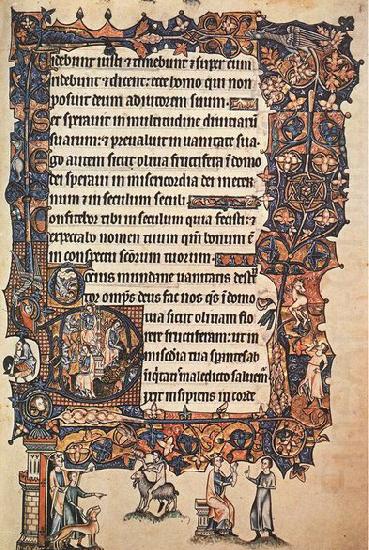 Videbunt iusti ⁊ timebunt ⁊ super eum
ridebunt ⁊ dicent: ecce homo qui non
posuit deum adiutorem suum.
Et sperauit in multitudine diuiciarū
suarum: ⁊ preualuit in uanitate sua.
Ego autem sicut oliua fructifera ī domo
dei speraui in misericordia dei mei in eter
num ⁊ in seculum seculi.
Confitebor tibi in seculum quia fecisti: ⁊
expectabo nomen tuum qm̄ bonum ē
in conspectu sc̄orum tuorum.
mundane uanitatis
tor omp̄s deus fac nos q̄s ī domo
tua sicut oliuam
fructiferam: ut in
mīa tua
maledicto
Dixit insipiens in corde